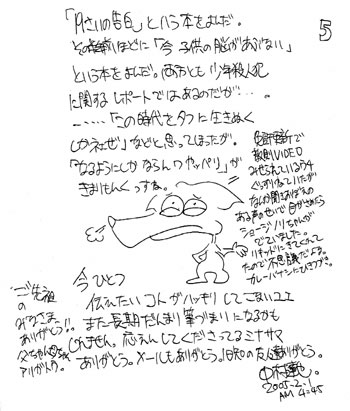 5
「14さいの告白」という本をよんだ。
その後ほどに「今 子供の脳があぶない」
という本をよんだ。両方とも 少年殺人犯
に関する レポートではあるのだが…。
……「この時代をタフに生きぬく
しかネェぜ」などと思ってしまったが。
「なるようにしかならんワ ヤッパリ」が
きまりもんくっすね。
で
教則VIDEO
みせられているウチ
ぐっすりねていたが
なんか聞きおぼえの
ある声のせいで目がさめたら
ショージノリちゃんが
でていました。
リキッドにきてくれて
たので不思議だよな。
今ひとつ
伝えたいコトがハッキリしてこないユエ
また長期だんまり筆づまりになるかも
しれません。応えんしてくださってるミナサマ
ありがとう。メールもありがとう。旧知の友人達ありがとう。
ご先祖
の
みなさま
ありがとう!!
父ちゃん母ちゃん
アリがトウ。
中村
2005.2.1
AM 4:45